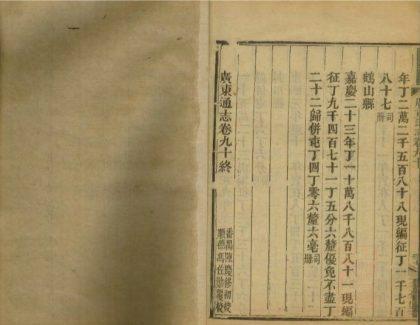 年丁二萬二千五百八十八現編征丁一千七百
八十七司冊
鶴山縣
嘉慶二十三年丁一十萬八千八百八十一現編
征丁九千四百七十一丁五分六釐優免不盡丁
二十二歸併屯丁四丁零六釐六毫司冊
廣東通志卷九十終
番禺陳慶修初校
順德馮佐勛覆校